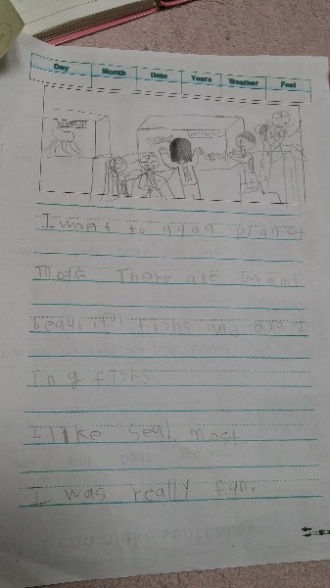 Day Month Date Years Weather Feel
I went to aqua planet
There are
beautiful fishs and
ing fishs
I like seal most.
I was really fun.